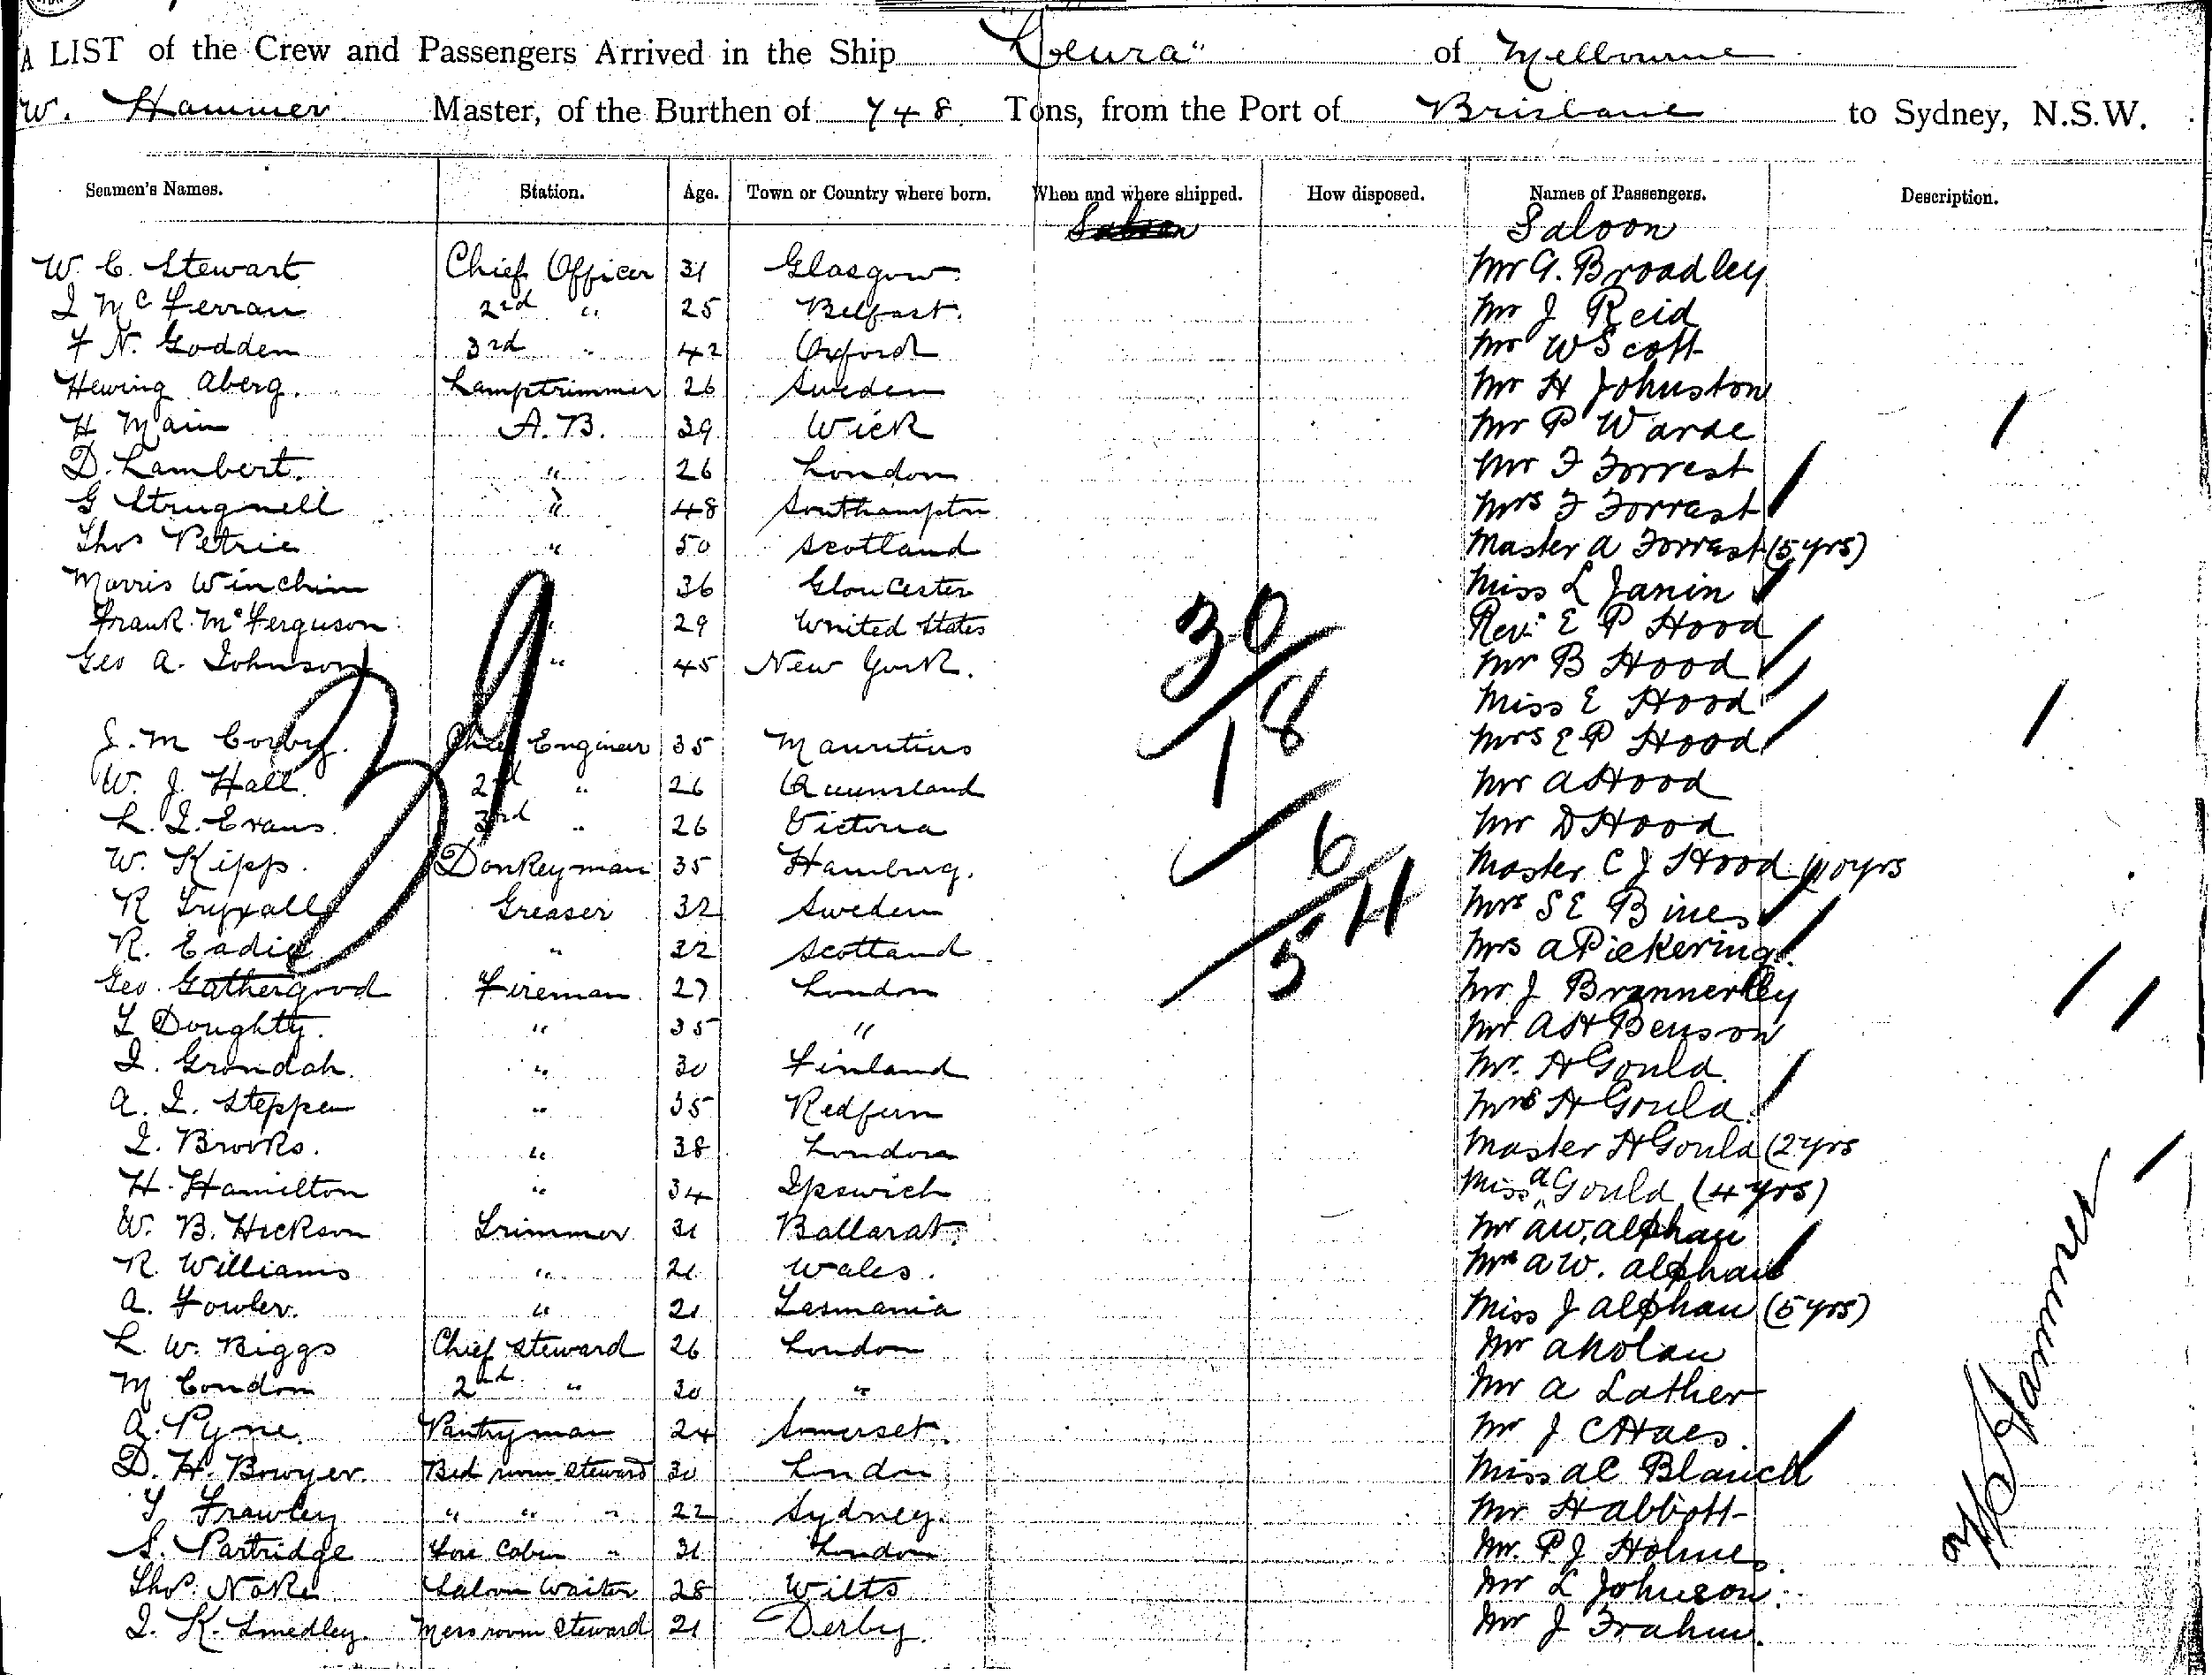 A LIST of the Crew and Passengers Arrived in the Ship "Oeura" of Melbourne
W. Hammer Master, of the Burthen of 748 Tons, from the Port of Brisbane to Sydney, N.S.W.
Seamen's Names. Station. Age. Town or Country where born. When and where shipped. How disposed. Names of Passengers. Description.
Saloon Saloon
W. C. Stewart Chief Officer 31 Glasgow. Mr A. Broadley
J McFerran 2nd " 25 Belfast. Mr J Reid
F N. Godden 3rd " 42 Oxford Mr W Scott
Hewing Aberg. Lamptrimmer 26 Sweden Mr H Johnston
H Main A.B. 39 Wick Mr P Warde
D. Lambert. " 26 London Mr F Forrest
G Strugnell " 48 Southampton Mrs F Forrest
Thos Petrie " 50 Scotland Master A Forrest (5 yrs)
Morris Winchim 36 Gloucester Miss L Janin
Frank McFerguson " 29 United States Rev. E P Hood
Geo A. Johnson " 45 New York. Mr B Hood
Miss E Hood
J. M Corby. Chief Engineer 35 Mauritius Mrs E P Hood
W. J. Hall. 2nd " 26 Queensland Mr A Hood
L. J. Evans. 3rd " 26 Victoria Mr D Hood
W. Kipp. Donkeyman 35 Hamburg. Master C J Hood 10 yrs
R Greaser 32 Sweden Mrs S E Bines
R. Eadie " 32 Scotland Mrs A Pickering
Geo. Gathergood Fireman 27 London Mr J Brannerley
T Doughty. " 35 " Mr A H Benson
J. Grondah. " 30 Finland Mr. H Gould
A. J. Steppen " 35 Redfern Mrs H Gould
J. Brooks. " 38 London Master H Gould (2 yrs
H. Hamilton " 34 Ipswich Miss A Gould (4 yrs)
W. B. Hickson Trimmer 31 Ballarat. Mr A W. Alphan
R. Williams " 21 Wales. Mrs A W. Alphan
A. Fowler. " 21 Tasmania Miss J Alphan (5 yrs)
L. W. Biggs Chief Steward 26 London Mr A Nolan
M Condon 2nd " 30 " Mr A Lather
A. Pyne. Pantryman 24 Somerset. Mr J C Haes.
D. H. Bowyer. Bed room Steward 30 London Miss A C Blanch
T Frawley " " " 22 Sydney. Mr H Abbott
S. Partridge Fore Cabin " 31 London Mr. P J Holmes
Thos. Noke Saloon Waiter 28 Wilts Mr L Johnson.
J. K. Smedley. Mess room Steward 21 Derby. Mr J Frahm.
39
30
18
1
6
4
5
W Hammer